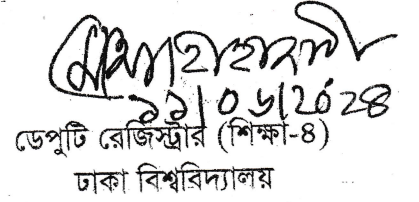 ১১/০৬/২০২৪
ডেপুটি রেজিস্ট্রার (শিক্ষা-৪)
ঢাকা বিশ্ববিদ্যালয়